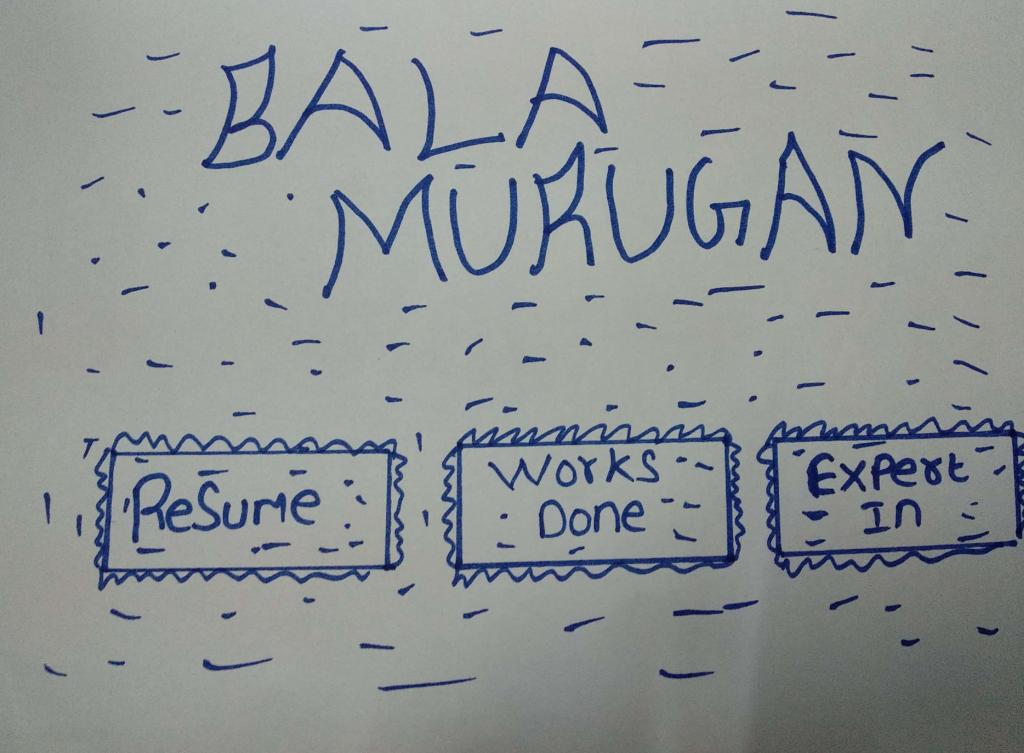 BALA
MURUGAN
ReSume
Works
Done
Expert
In